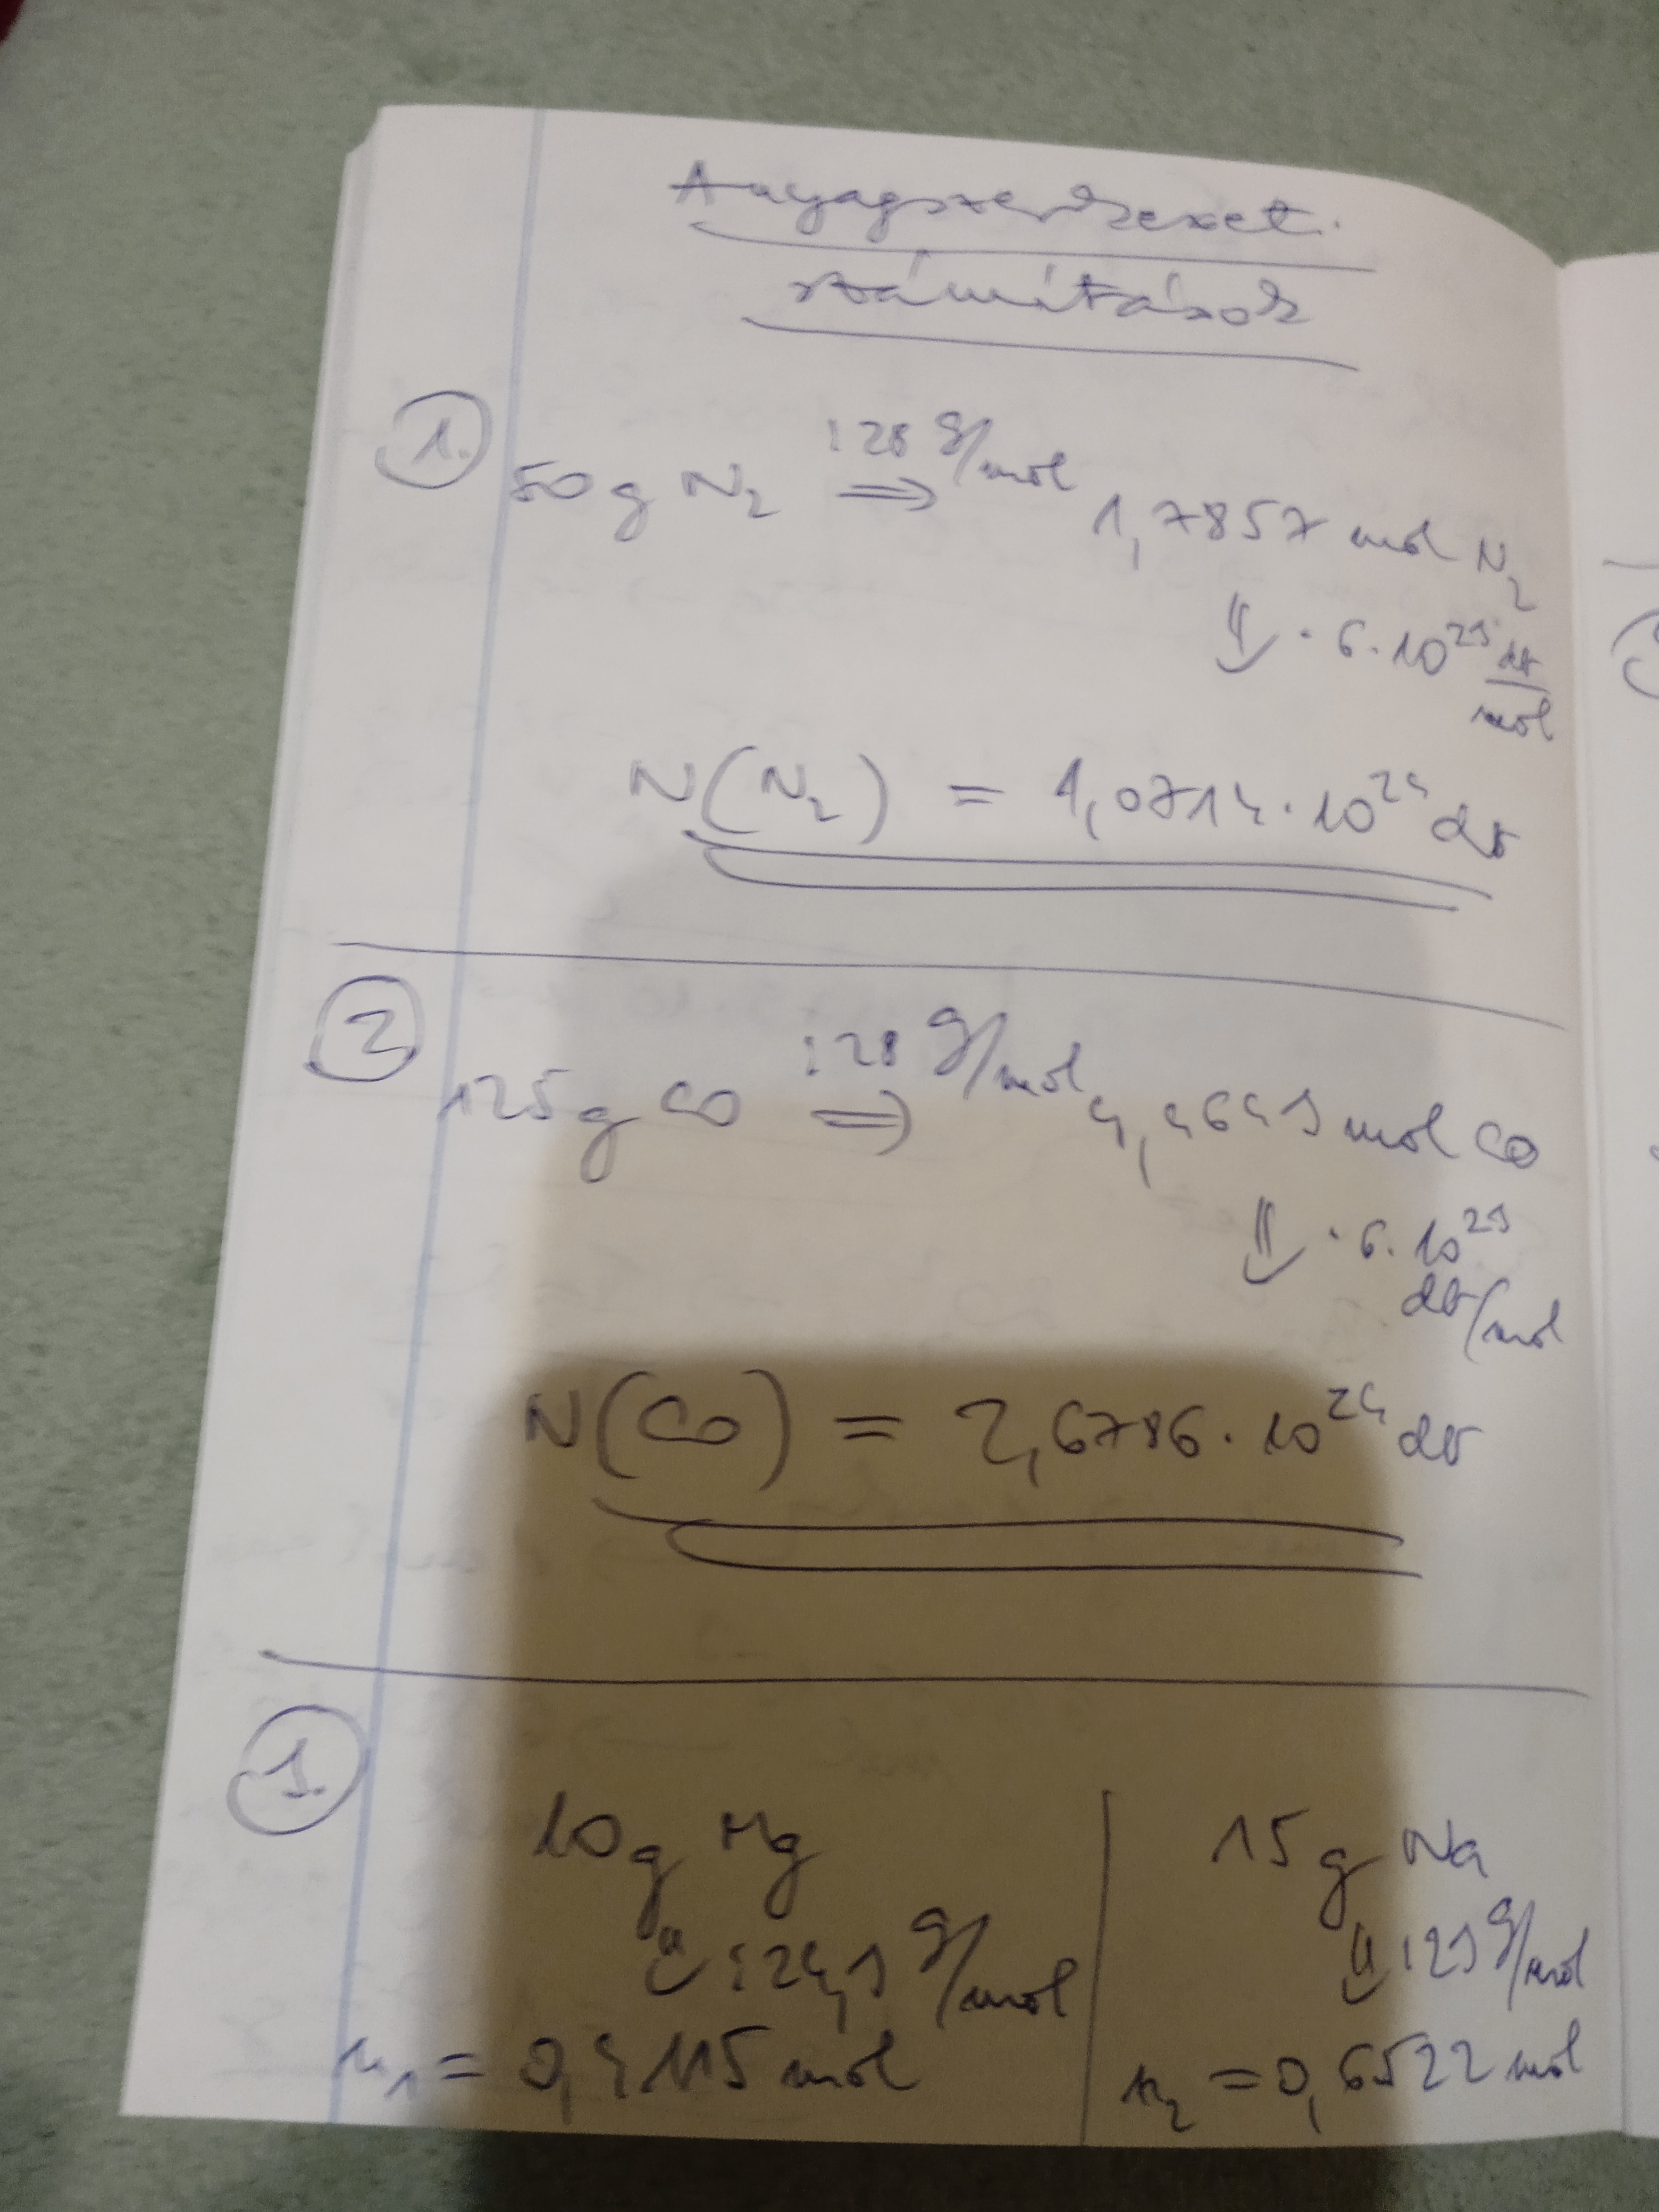 Anyagszerkezet.
számítások
1.
50g N₂ :28 g/mol ⇒ 1,7857 mol N₂
⇓ · 6·10²³ db/mol
N(N₂) = 1,0714·10²⁴ db
2
125g CO :28 g/mol ⇒ 4,4643 mol CO
⇓ · 6·10²³ db/mol
N(CO) = 2,6786·10²⁴ db
3.
10g Mg | 15g Na
⇓ :24,3 g/mol | ⇓ :23 g/mol
n₁ = 0,4115 mol | n₂ = 0,6522 mol